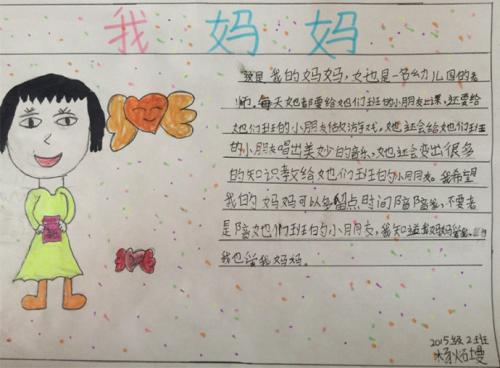 我妈妈
这是我的妈妈,她也是一名幼儿园的老
师,每天她都要给她们班的小朋友上课,还要给
她们班的小朋友做游戏,她还会给她们班
的小朋友唱出美妙的音乐,她还会变出很多
的知识教给她们班的小朋友。我希望
我的妈妈可以多留点时间陪陪我,不要老
是陪她们班的小朋友,我知道我妈妈爱我,
我也爱我妈妈。
2015级2班
杨